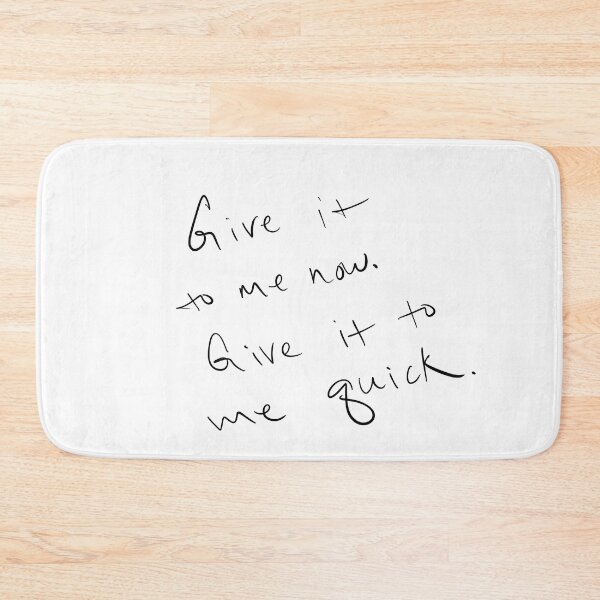 Give it
to me now.
Give it to
me quick.